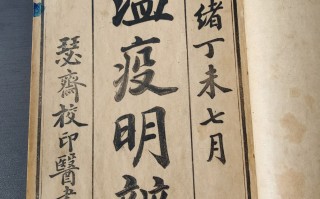 緒丁未七月
溫疫明辨
瑟齋校印醫書